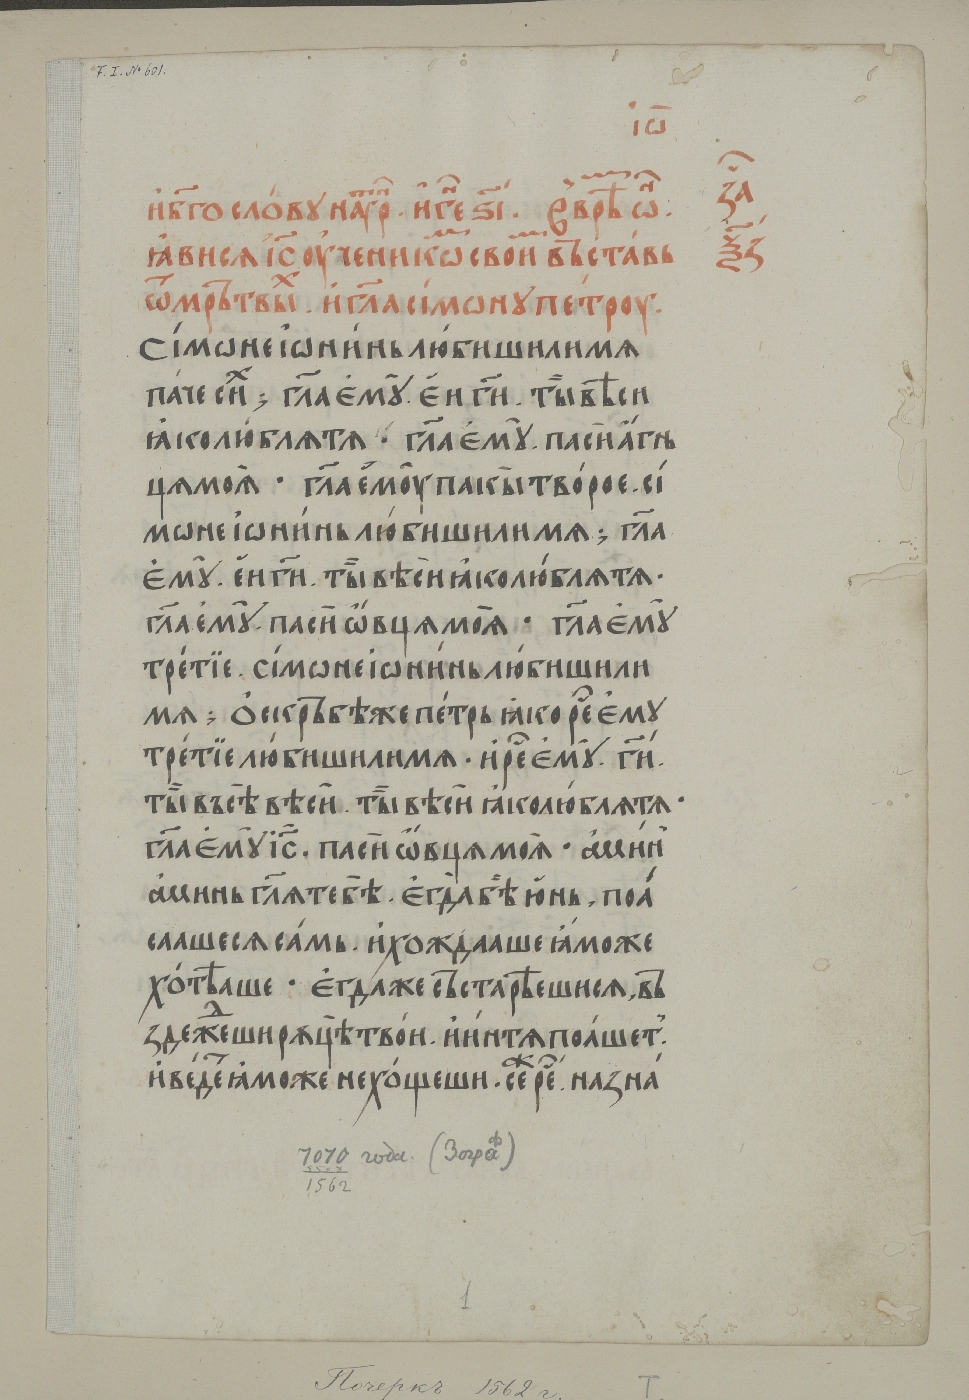 F. I. № 601.
іѡ҃
и҆ бг҃ословꙋ на ꙋ҆тр҃. и҆ гі҃е ѕі҃.
за҃
ꙗ҆вися і҆с҃ оу҆ченикѡ свои въставь
ѯз҃
ѿ мрътвы. и҆ гл҃а сі́мѡнꙋ петроу.
Сі́мѡне і҆ѡни́нь лю́биши ли мя
па́че сиⷯ; гл҃а є҆мꙋ. є҆и гн҃. ты вѣси
ꙗ҆ко лю́блѧ тя · гл҃а є҆мꙋ. паси а҆гнь
цѧ моѧ · гл҃а є҆моу пакы тво́рое. сі́
мѡне і҆ѡни́нь лю́биши ли мѧ; гл҃а
є҆мꙋ. є҆и гн҃. ты вѣси ꙗ҆ко лю́блѧ тѧ.
гл҃а є҆мꙋ. паси ѡ҆вцѧ моѧ · гл҃а є҆мꙋ
тре́тїе. сі́мѡне і҆ѡни́нь лю́биши ли
мѧ; ѻ҆скръбѣ же пе́трь ꙗ҆ко ре҃ є҆мꙋ
тре́тїе лю́биши ли мѧ · и҆ ре҃ є҆мꙋ. гн҃.
ты въсѣ вѣси. ты вѣси ꙗ҆ко лю́блѧ тѧ ·
гл҃а є҆мꙋ і҆с҃. паси ѡ҆вцѧ моѧ · а҆мин
а҆минь гл҃ѧ тебѣ. є҆гда бѣ ю҆нь, поꙗ́
саашесѧ са́мь. и҆ хождааше ꙗ҆може
хо́тѣаше · є҆гда же състарѣешисѧ, въ
здежⷣеши рѧцѣ твои. и҆ и҆нь тѧ поꙗ́шет.
и҆ веде ꙗ҆може не хо́щеши. сеⷤ ре҃. назна́
7070 года. (Зогра̇ф)
1562
1
Почеркъ 1562 г.
I.